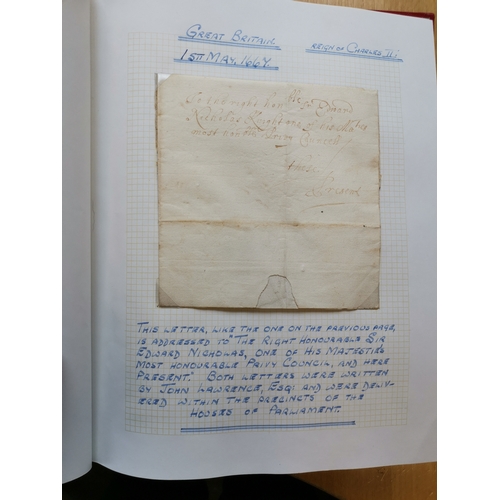 GREAT BRITAIN
REIGN OF CHARLES II.
1ST MAY, 1664.
To the right hon
Sr Edward
Nicholas Knight one of his
most
These
THIS LETTER, LIKE THE ONE ON THE PREVIOUS PAGE,
IS ADDRESSED "TO THE RIGHT HONOURABLE SIR
EDWARD NICHOLAS, ONE OF HIS MAJESTIES
MOST HONOURABLE PRIVY COUNCIL, AND HERE
PRESENT". BOTH LETTERS WERE WRITTEN
BY JOHN LAWRENCE, ESQ; AND WERE DELIV-
ERED WITHIN THE PRECINCTS OF THE
HOUSES OF PARLIAMENT.